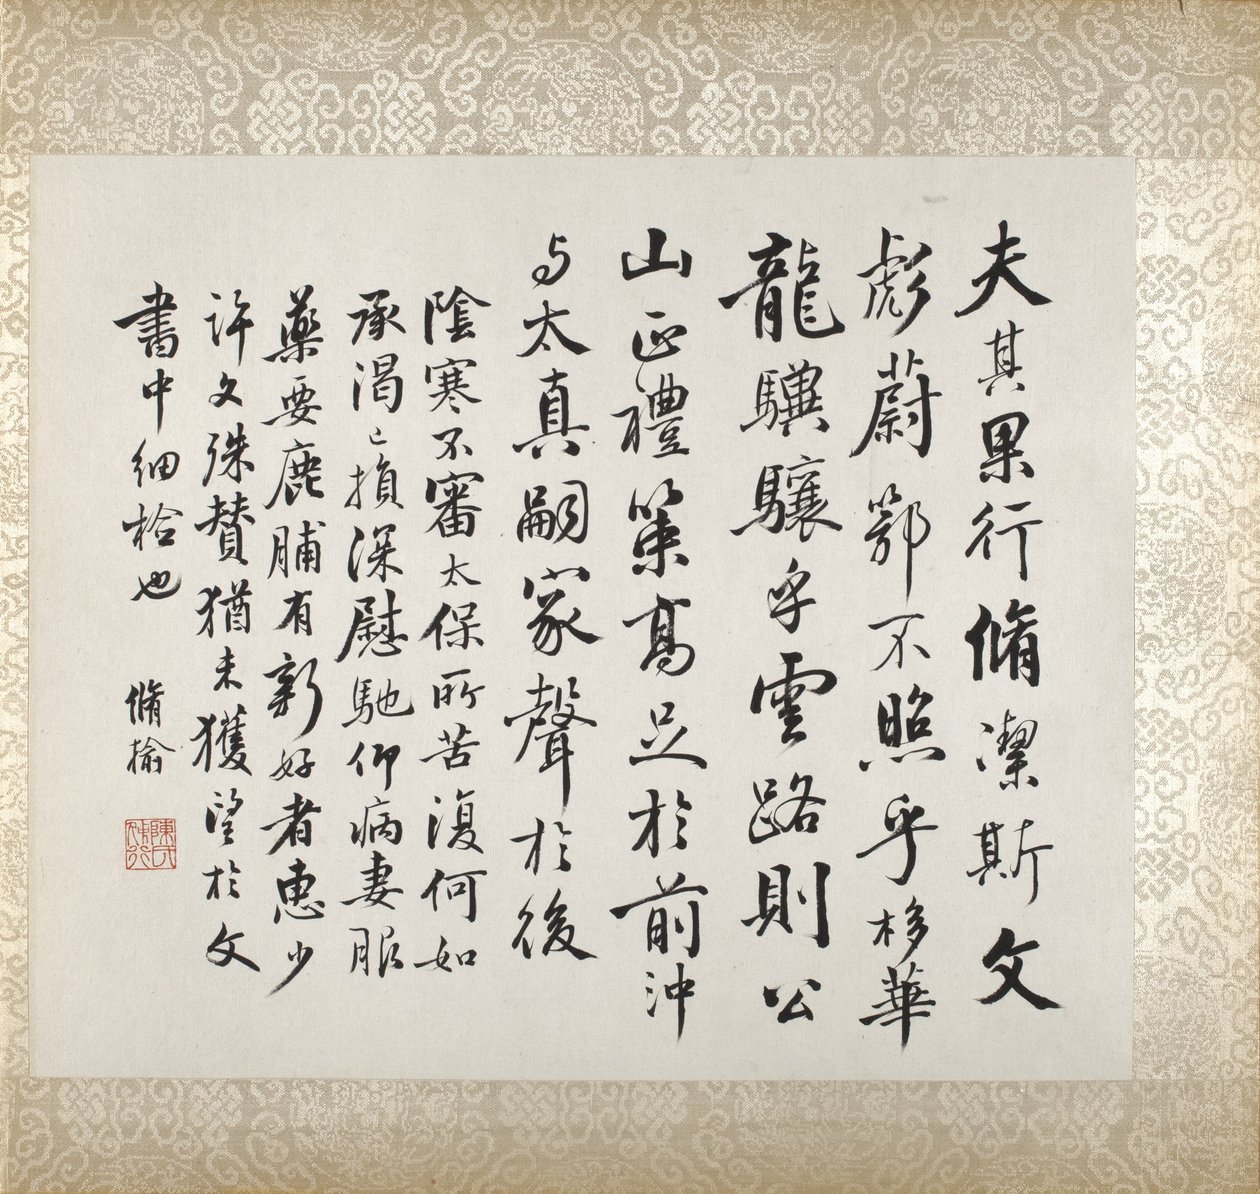 夫其果行脩潔斯文
彪蔚鄂不照乎移華
龍驥驤乎雲路則公
山正禮策高足於前沖
与太真嗣家聲於後
陰寒不審太保所苦復何如
承渴已損深慰馳仰病妻服
藥要鹿脯有新好者惠少
許文殊贊猶未獲望於文
書中細檢也
脩榆
陳氏